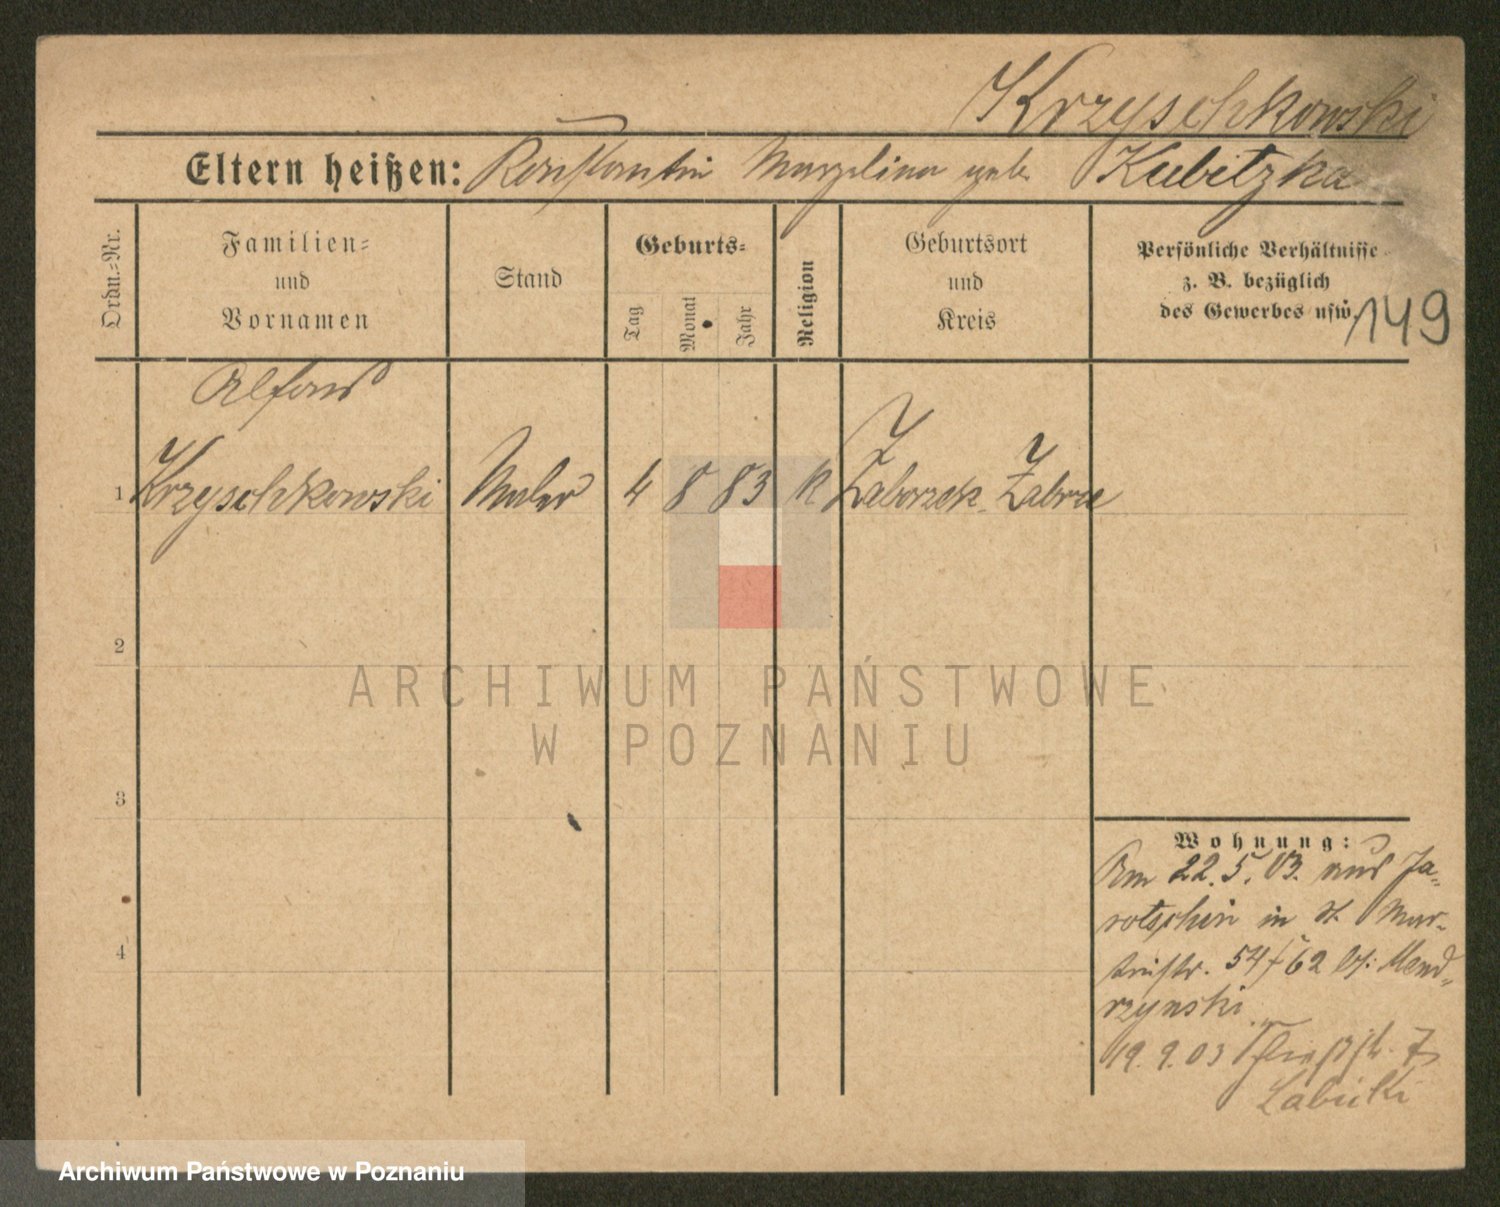 Krzyschkowski
Eltern heißen: Konstantin Marzelina geb. Kubitzka
Ordn.-Nr.
Familien-
und
Vornamen
Stand
Geburts-
Tag
Monat
Jahr
Religion
Geburtsort
und
Kreis
Persönliche Verhältnisse
z. B. bezüglich
des Gewerbes usw.
149
Alfons
1 Krzyschkowski Maler 4 8 83 K Zaborzek Zabrze
2
ARCHIWUM PAŃSTWOWE
W POZNANIU
3
4
Wohnung:
Am 22.5.03. aus Ja-
rotschin in St. Mar-
tinstr. 54/62 bei Mend-
rzynski
19.9.03 7
Labicki
Archiwum Państwowe w Poznaniu